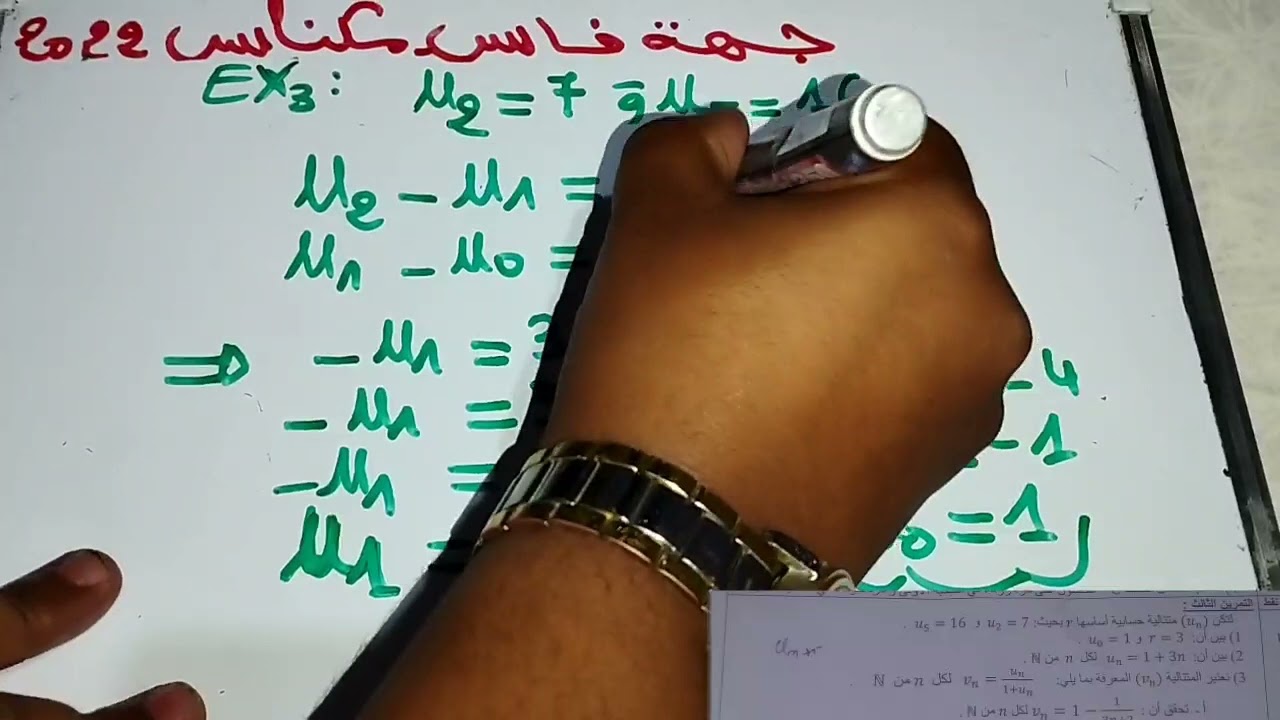 جهة فاس مكناس 2022
EX3: u2 = 7 و u = 1
u2 - u1 =
u1 - u0 =
⇒ - u1 = 3 - 4
- u1 = - 1
- u1 =
u1 - 0 = 1
التمرين الثالث :
لتكن (un) متتالية حسابية أساسها r بحيث: u2 = 7 و u5 = 16 .
1) بين أن: r = 3 و u0 = 1 .
2) بين أن: un = 1 + 3n لكل n من ℕ.
3) نعتبر المتتالية (vn) المعرفة بما يلي: vn = un/(1+un) لكل n من ℕ
أ- تحقق أن : vn = 1 - 1/(3n+2) لكل n من ℕ.